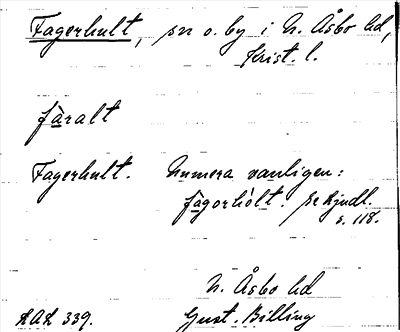 Fagerhult, sn o. by i N. Åsbo hd,
Krist. l.
fàralt
Fagerhult. Numera vanligen:
fàgorhòlt. Se Ljudl.
s. 118.
N. Åsbo hd
LAL 339. Gust. Billing